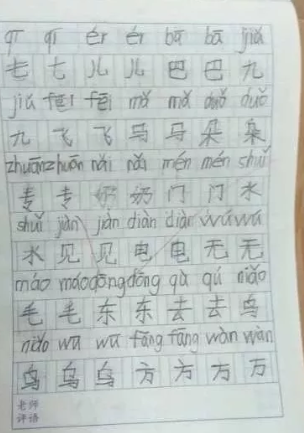 qī qī ér ér bā bā jiǔ
七 七 儿 儿 巴 巴 九
jiǔ fēi fēi mǎ mǎ duǒ duǒ
九 飞 飞 马 马 朵 朵
zhuān zhuān nǎi nǎi mén mén shuǐ
专 专 奶 奶 门 门 水
shuǐ jiàn jiàn diàn diàn wú wú
水 见 见 电 电 无 无
máo máo dōng dōng qù qù niǎo
毛 毛 东 东 去 去 鸟
niǎo wū wū fāng fāng wàn wàn
鸟 乌 乌 方 方 万 万
老师
评语